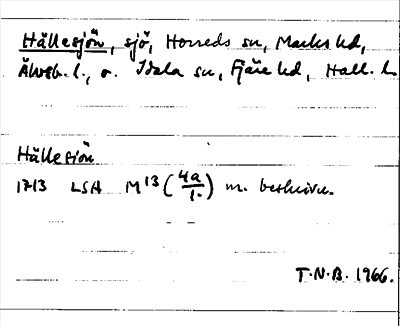 Hällesjön, sjö, Horreds sn, Marks hd,
Älvsb. l., o. Idala sn, Fjäre hd, Hall. l.
Hällesiön
1713 LSA M13 (4a/1.) m. beskrivn.
T.N.B. 1966.